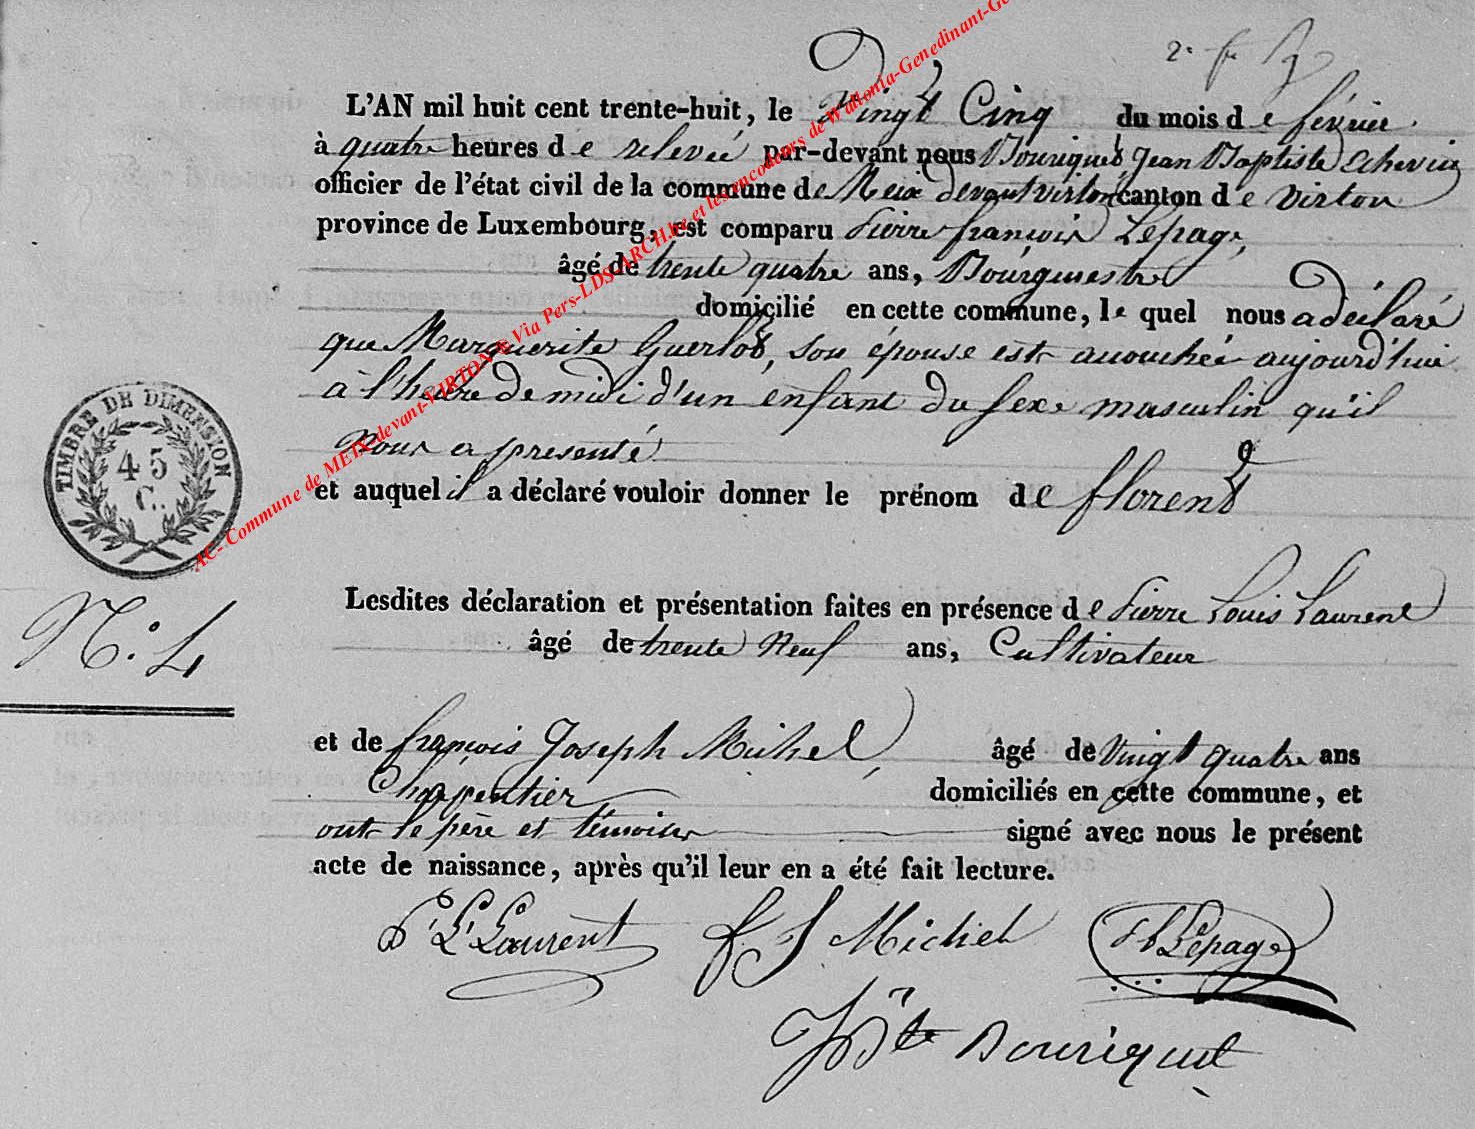 L'AN mil huit cent trente-huit, le Vingt Cinq du mois de février
à quatre heures de relevée par-devant nous Bouriquet Jean Baptiste Echevin
officier de l'état civil de la commune de Meix devant virton canton de virton
province de Luxembourg, est comparu Pierre françois Lepage,
âgé de trente quatre ans, Bourgmestre
domicilié en cette commune, le quel nous a déclaré
que Marguerite Guerlot, son épouse est accouchée aujourd'hui
à l'heure de midi d'un enfant du sexe masculin qu'il
nous a presenté
et auquel il a déclaré vouloir donner le prénom de florent
TIMBRE DE DIMENSION
45
C.
N.° 4
Lesdites déclaration et présentation faites en présence de Pierre Louis Laurent
âgé de trente Neuf ans, Cultivateur
et de françois Joseph Michel, âgé de Vingt quatre ans
Charpentier domiciliés en cette commune, et
ont le père et témoins signé avec nous le présent
acte de naissance, après qu'il leur en a été fait lecture.
P. L. Laurent f J Michel Lepage
JBte Bouriquet
AC- Commune de MEIX devant-VIRTON & Via Pers-LDS-ARCH.be et les encodeurs de Wallonia-Genedinant-Ge